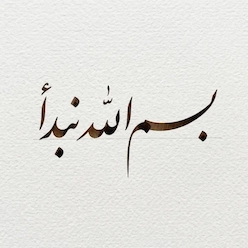 بسم الله نبدأ